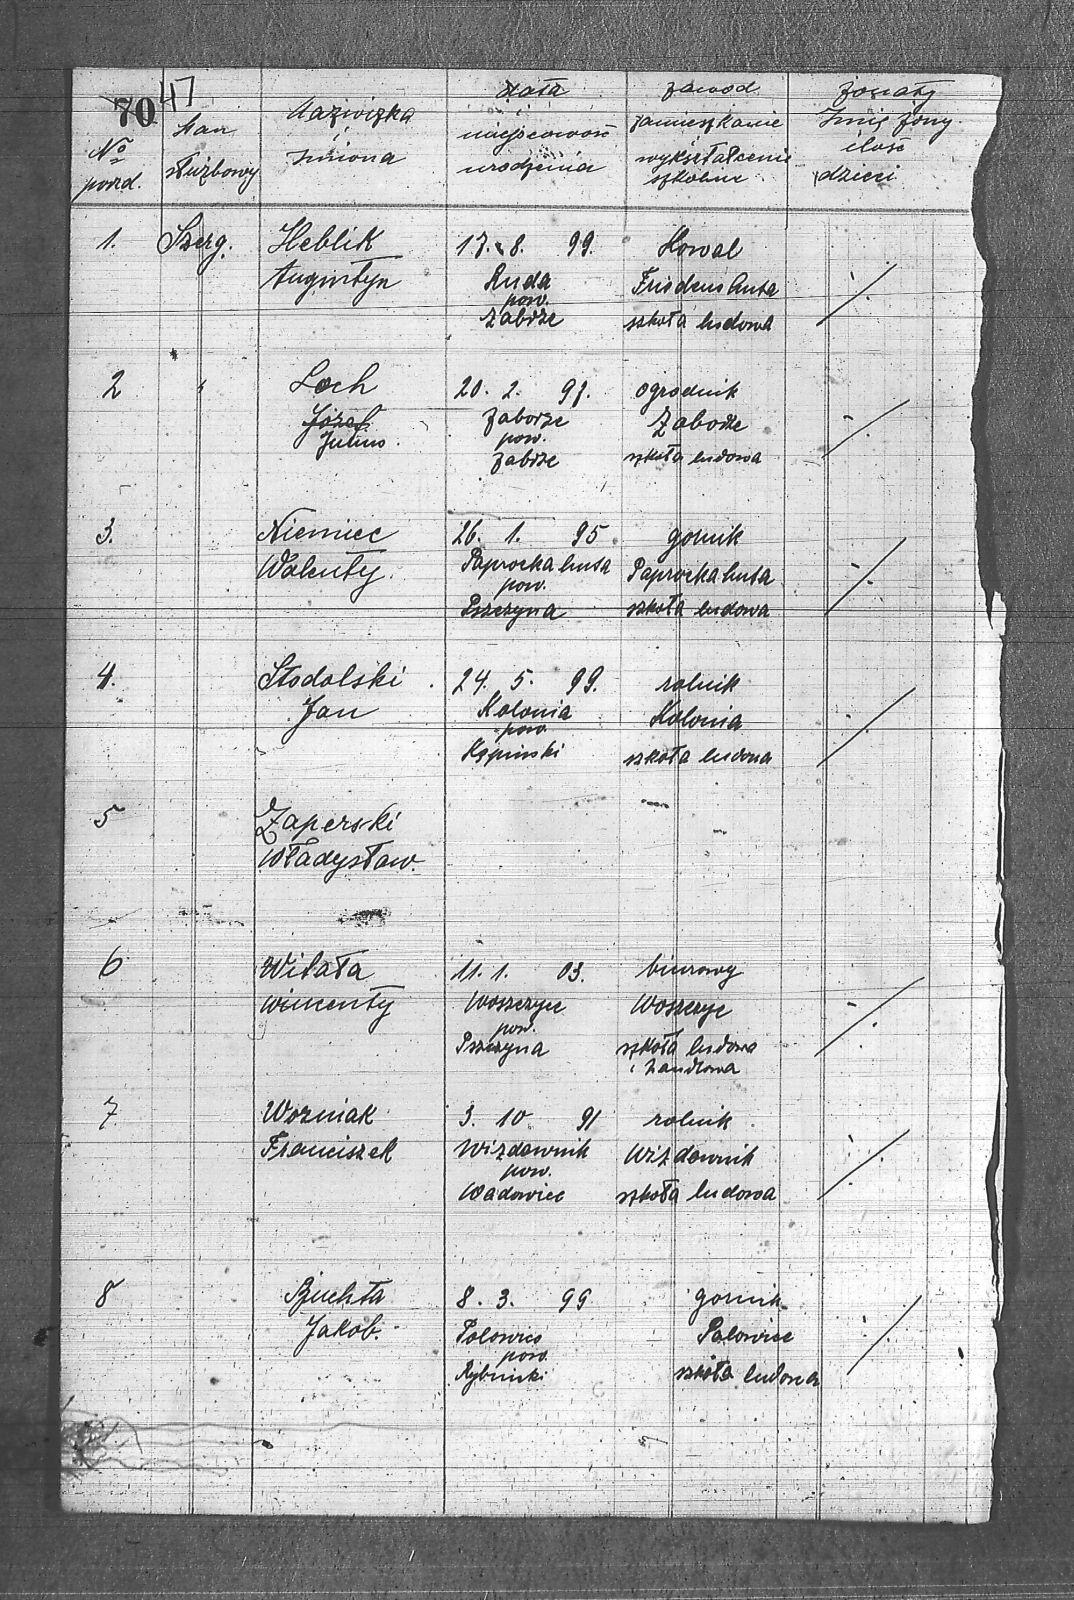 70 47
No porzd.
Stan służbowy
Nazwizka imiona
Data miejscowość urodzenia
Zawod zamieszkanie wykształcenie szkolne
Żonaty Imię żony ilość dzieci
1. Szerg. Heblik 17. 8. 99. Kowal
Augustyn Ruda Friedenshuta
pow.
Zabrze szkoła ludowa
2 " Loch 20. 2. 97. ogrodnik
Józef Zaborze Zaborze
Julius. pow.
Zabrze szkoła ludowa
3. Niemiec 26. 1. 95 gornik
Walenty. Paprocka huta Paprocka huta
pow.
Pszczyna szkoła ludowa
4. Stodolski 24. 5. 99. rolnik
Jan Kolonia Kolonia
pow.
Kępinski szkoła ludowa
5 Zaperski
Władysław.
6 Witała 11. 1. 03. biurowy
Wincenty Woszczyce Woszczyc
pow.
Pszczyna szkoła ludowa
i handlowa
7 Wozniak 3. 10 91 rolnik
Franciszek Wizdownik Wizdownik
pow.
Wadowice szkoła ludowa
8 Buchta 8. 3. 99 gornik
Jakob. Polowiec Palowiec
pow.
Rybnicki szkoła ludowa